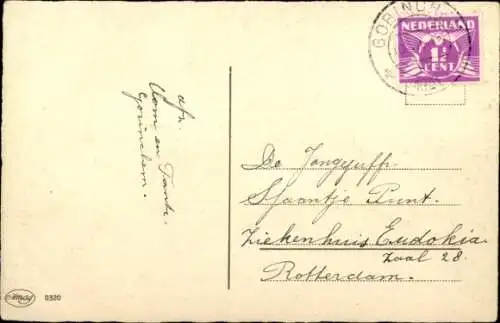 GORINCH
NEDERLAND
1½
CENT
afz.
Oom en Tante
Gorinchem.
De Jongejuffr.
Sjaantje Punt.
Ziekenhuis Eudokia
Zaal 28.
Rotterdam.
0320